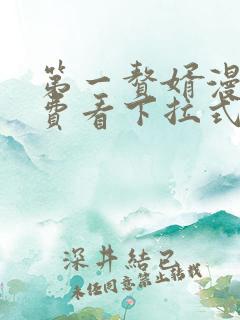 第一赘婿漫
费看下拉式
深井結己
未经同意禁止转载